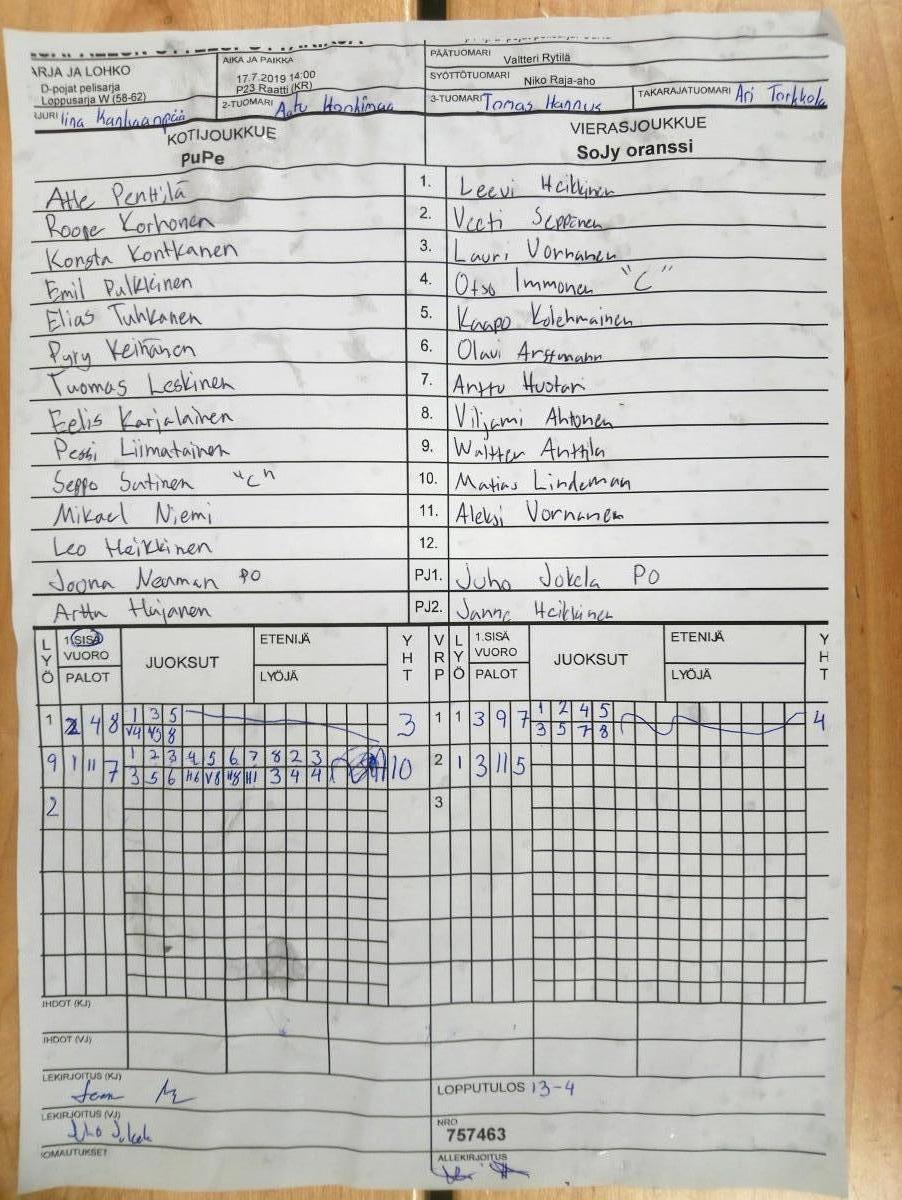 ARJA JA LOHKO
D-pojat pelisarja
Loppusarja W (58-62)
AIKA JA PAIKKA
17.7.2019 14:00
P23 Raatti (KR)
PÄÄTUOMARI Valtteri Rytilä
SYÖTTÖTUOMARI Niko Raja-aho
JURI Iina Kanhaanpää 2-TUOMARI Aatu Honkimaa 3-TUOMARI Tomas Hannus TAKARAJATUOMARI Ari Torkkola
KOTIJOUKKUE VIERASJOUKKUE
PuPe SoJy oranssi
Atte Penttilä 1. Leevi Heikkinen
Roope Korhonen 2. Veeti Seppänen
Konsta Kontkanen 3. Lauri Vornanen
Emil Pulkkinen 4. Otso Immonen "C"
Elias Tuhkanen 5. Kaapo Kolehmainen
Pyry Keinänen 6. Olavi Arstmann
Tuomas Leskinen 7. Anttu Huotari
Eelis Karjalainen 8. Viljami Ahtonen
Pessi Liimatainen 9. Waltter Anttila
Seppo Sutinen "C" 10. Matias Lindeman
Mikael Niemi 11. Aleksi Vornanen
Leo Heikkinen 12.
Joona Neuman PO PJ1. Juho Jokela PO
Arttu Hujanen PJ2. Janne Heikkinen
LYÖ 1.SISÄ VUORO PALOT JUOKSUT ETENIJÄ LYÖJÄ YHT VRP LYÖ 1.SISÄ VUORO PALOT JUOKSUT ETENIJÄ LYÖJÄ YHT
1 2 4 8 1 3 5 3 1 1 3 9 7 1 2 4 5 4
V4 V3 8 3 5 7 8
9 1 11 7 1 2 3 4 5 6 7 8 2 3 10 2 1 3 11 5
3 5 6 H6 V8 H8 H1 3 4 4
2 3
IHDOT (KJ)
IHDOT (VJ)
LEKIRJOITUS (KJ)
LOPPUTULOS 13-4
LEKIRJOITUS (VJ)
NRO
757463
OMAUTUKSET
ALLEKIRJOITUS